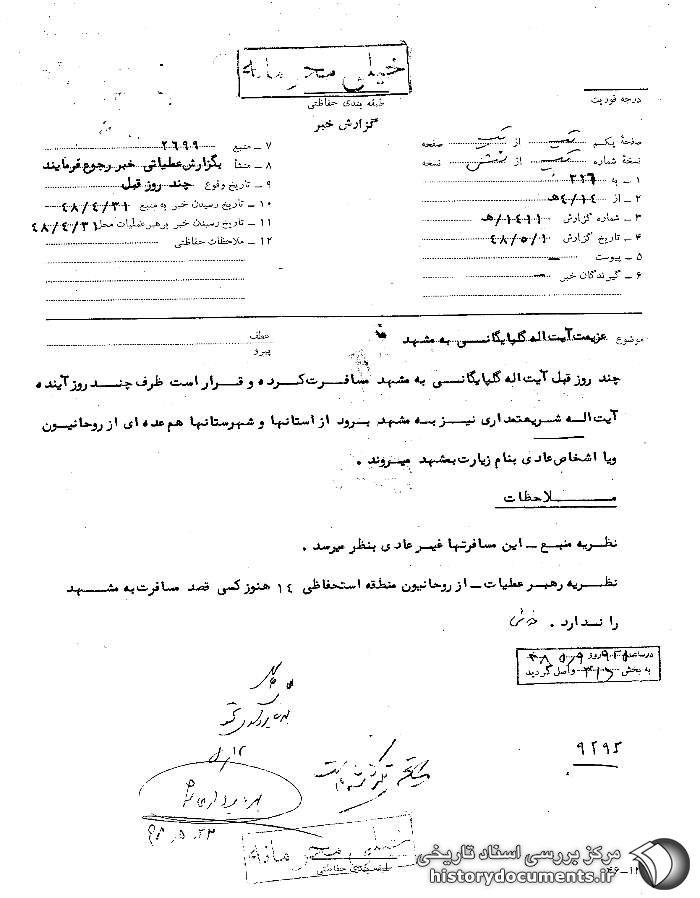 خیلی محرمانه
طبقه بندی حفاظتی
گزارش خبر
درجه فوریت
صفحهٔ یکم از یک صفحه
نسخهٔ شماره یک از شش نسخه
۱ ـ به ۳۱۶
۲ ـ از ۱۴/۴هـ
۳ ـ شماره گزارش ۱۴۱۱/هـ
۴ ـ تاریخ گزارش ۴۸/۵/۱
۵ ـ پیوست ـ
۶ ـ گیرندگان خبر ـ
۷ ـ منبع ۲۶۹۹
۸ ـ منشأ بگزارش عملیاتی خبر رجوع فرمایند
۹ ـ تاریخ وقوع چند روز قبل
۱۰ ـ تاریخ رسیدن خبر به منبع ۴۸/۴/۳۱
۱۱ ـ تاریخ رسیدن خبر برهبر عملیات محل ۴۸/۴/۳۱
۱۲ ـ ملاحظات حفاظتی
موضوع عزیمت آیت اله گلپایگانی به مشهد
عطف
پیرو
چند روز قبل آیت اله گلپایگانی به مشهد مسافرت کرده و قرار است ظرف چند روز آینده
آیت اله شریعتمداری نیز به مشهد برود از استانها و شهرستانها هم عده ای از روحانیون
ویا اشخاص عادی بنام زیارت بمشهد میروند .
ملاحظات
نظریه منبع ـ این مسافرتها غیر عادی بنظر میرسد .
نظریه رهبر عملیات ـ از روحانیون منطقه استحفاظی ۱۴ هنوز کسی قصد مسافرت به مشهد
را ندارد .
در ساعت روز ۴۸/۵/۹
به بخش ۳۱۶ واصل گردید
۹۲۹۲
۵/۱۲
بهره برداری شد
۴۸/۵/۲۳
خیلی محرمانه
طبقه بندی حفاظتی
مرکز بررسی اسناد تاریخی
historydocuments.ir